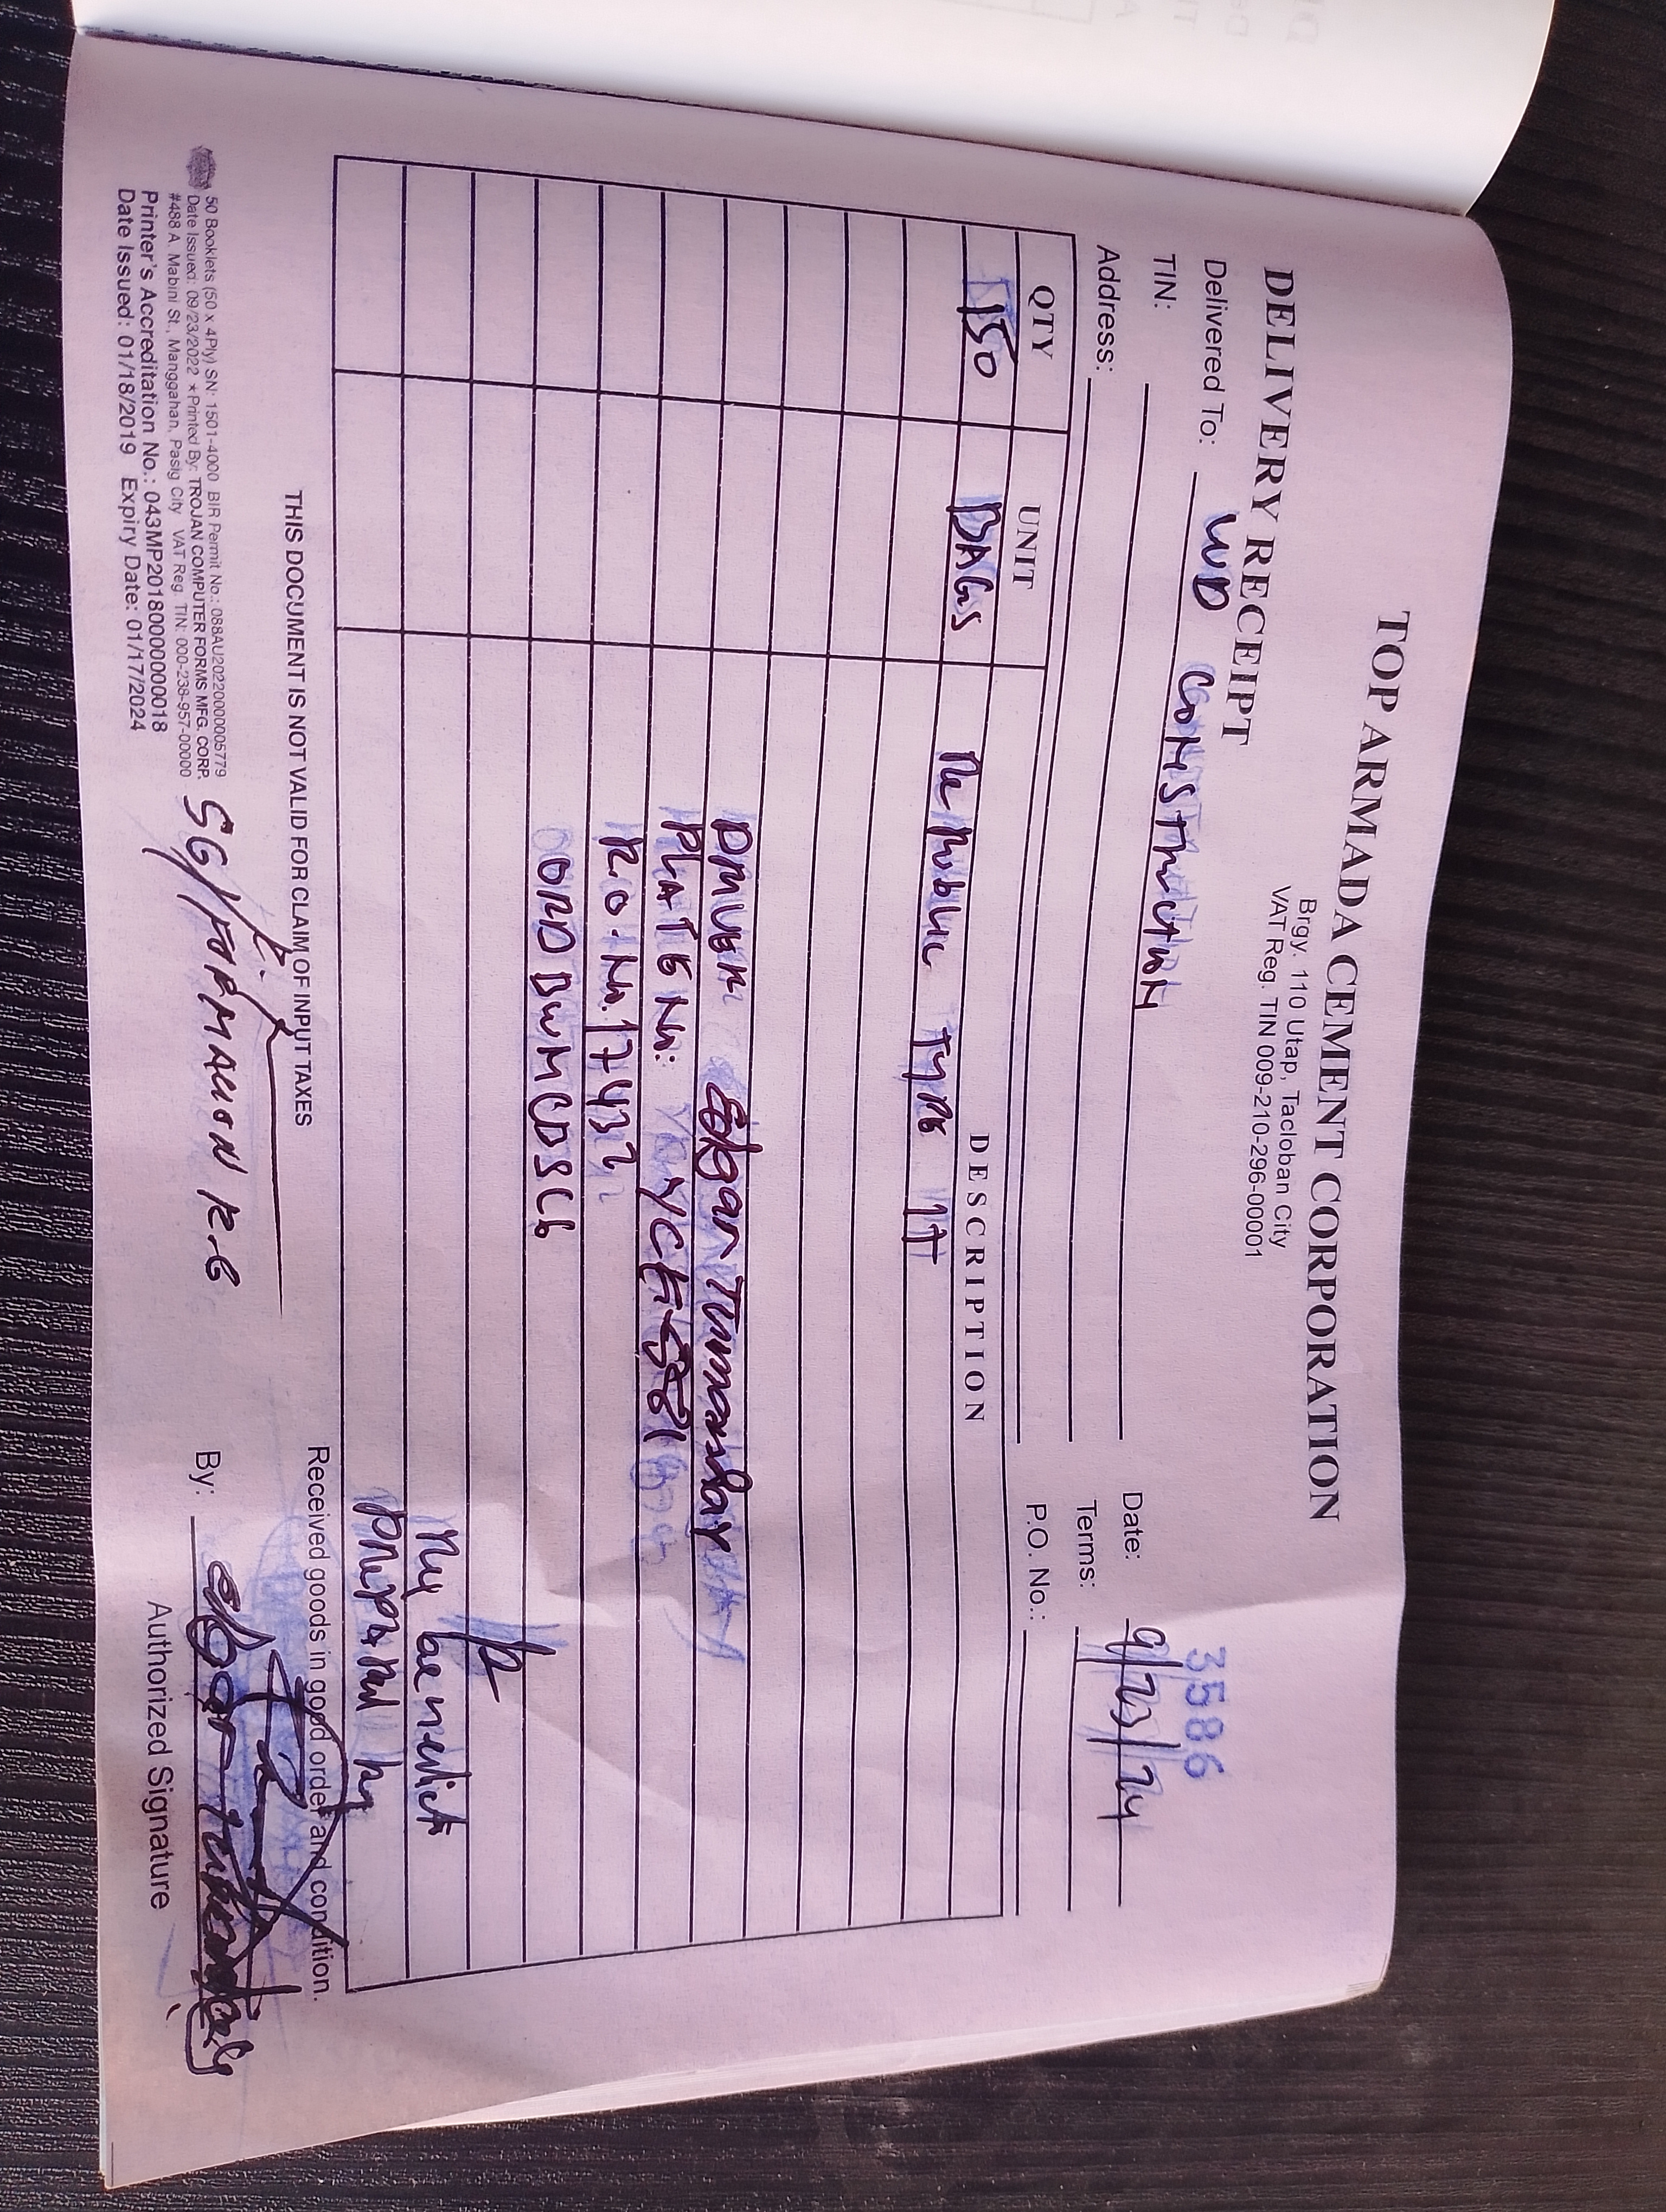 TOP ARMADA CEMENT CORPORATION
Brgy. 110 Utap, Tacloban City
VAT Reg. TIN 009-210-296-00001
DELIVERY RECEIPT
3586
Delivered To: WD CONSTRUCTION
Date: 9/23/24
TIN:
Terms:
Address:
P.O. No.:
QTY UNIT DESCRIPTION
150 BAGS Republic Type 1T
DRIVER Edgar Tumanday
PLATE No:
R.O. No. 17432
Prepared by
THIS DOCUMENT IS NOT VALID FOR CLAIM OF INPUT TAXES
Received goods in good order and condition.
50 Booklets (50 x 4Ply) SN: 1501-4000 BIR Permit No.: 088AU20220000005779
Date Issued: 09/23/2022 * Printed By: TROJAN COMPUTER FORMS MFG. CORP.
#488 A. Mabini St., Manggahan, Pasig City VAT Reg. TIN: 000-238-957-00000
Printer's Accreditation No.: 043MP20180000000018
Date Issued: 01/18/2019 Expiry Date: 01/17/2024
SG/
By:
Authorized Signature